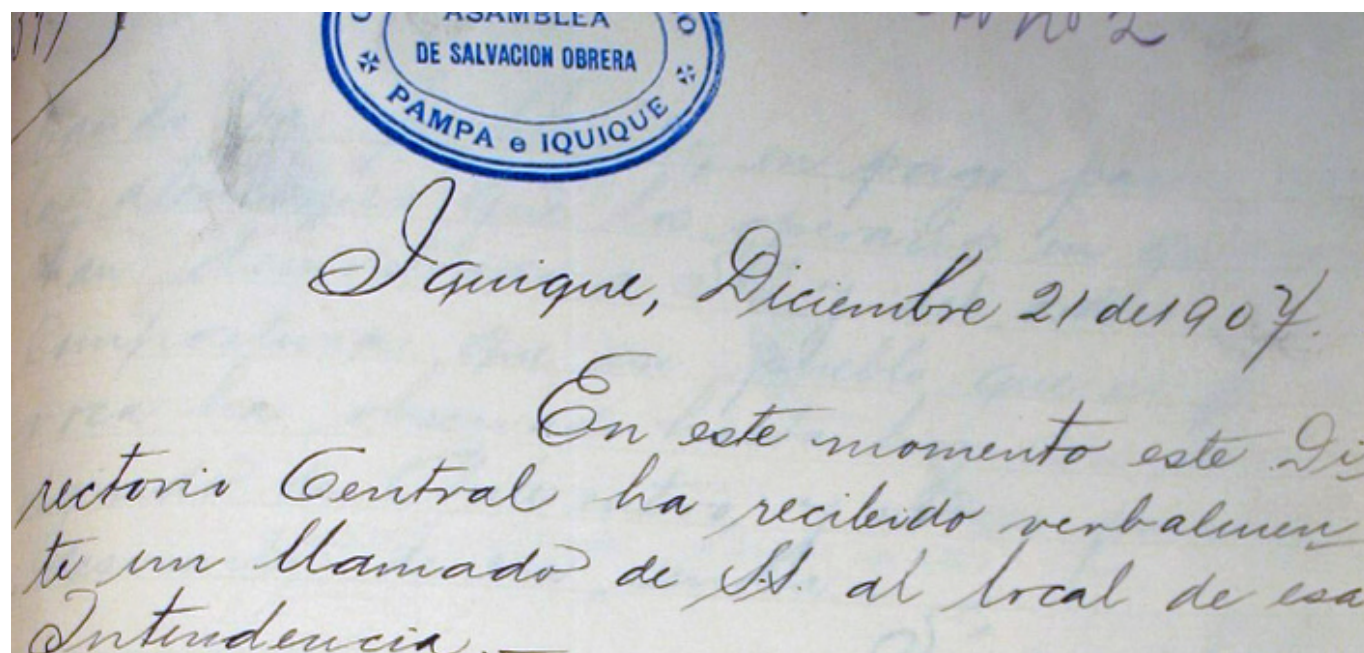 ASAMBLEA
DE SALVACION OBRERA
PAMPA e IQUIQUE
No 2
Iquique, Diciembre 21 de 1907.
En este momento este Di
rectorio Central ha recibido verbalmen
te un llamado de S.S. al local de esa
Intendencia.—